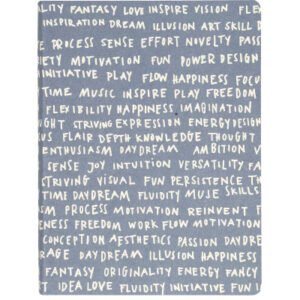 VITALITY FANTASY LOVE INSPIRE VISION FLEX
INSPIRATION DREAM ILLUSION ART SKILL D
E PROCESS SENSE EFFORT NOVELTY PASS
IETY MOTIVATION FUN POWER DESIGN
INITIATIVE PLAY FLOW HAPPINESS FOCUS
TIME MUSIC INSPIRE PLAY FREEDOM
FLEXIBILITY HAPPINESS IMAGINATION
GHT STRIVING EXPRESSION ENERGY DESIGN
US FLAIR DEPTH KNOWLEDGE THOUGHT
ENTHUSIASM DAYDREAM AMBITION V
SENSE JOY INTUITION VERSATILITY FA
STRIVING VISUAL FUN PERSISTENCE TH
TIME DAYDREAM FLUIDITY MUSE SKILLS
ASM PROCESS MOTIVATION REINVENT F
ENESS FREEDOM WORK FLOW MOTIVATION
CONCEPTION AESTHETICS PASSION DAYDRE
RAGE DAYDREAM ILLUSION HAPPINESS
FANTASY ORIGINALITY ENERGY FANCY
IDEA LOVE FLUIDITY INITIATIVE FUN I